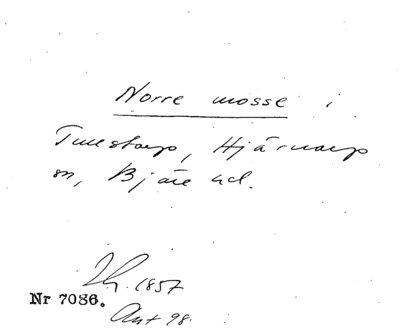 Norre mosse i
Tullstorp, Hjärnarp
sn, Bjäre hd.
Th. 1857
Nr 7086.
Ant 98.